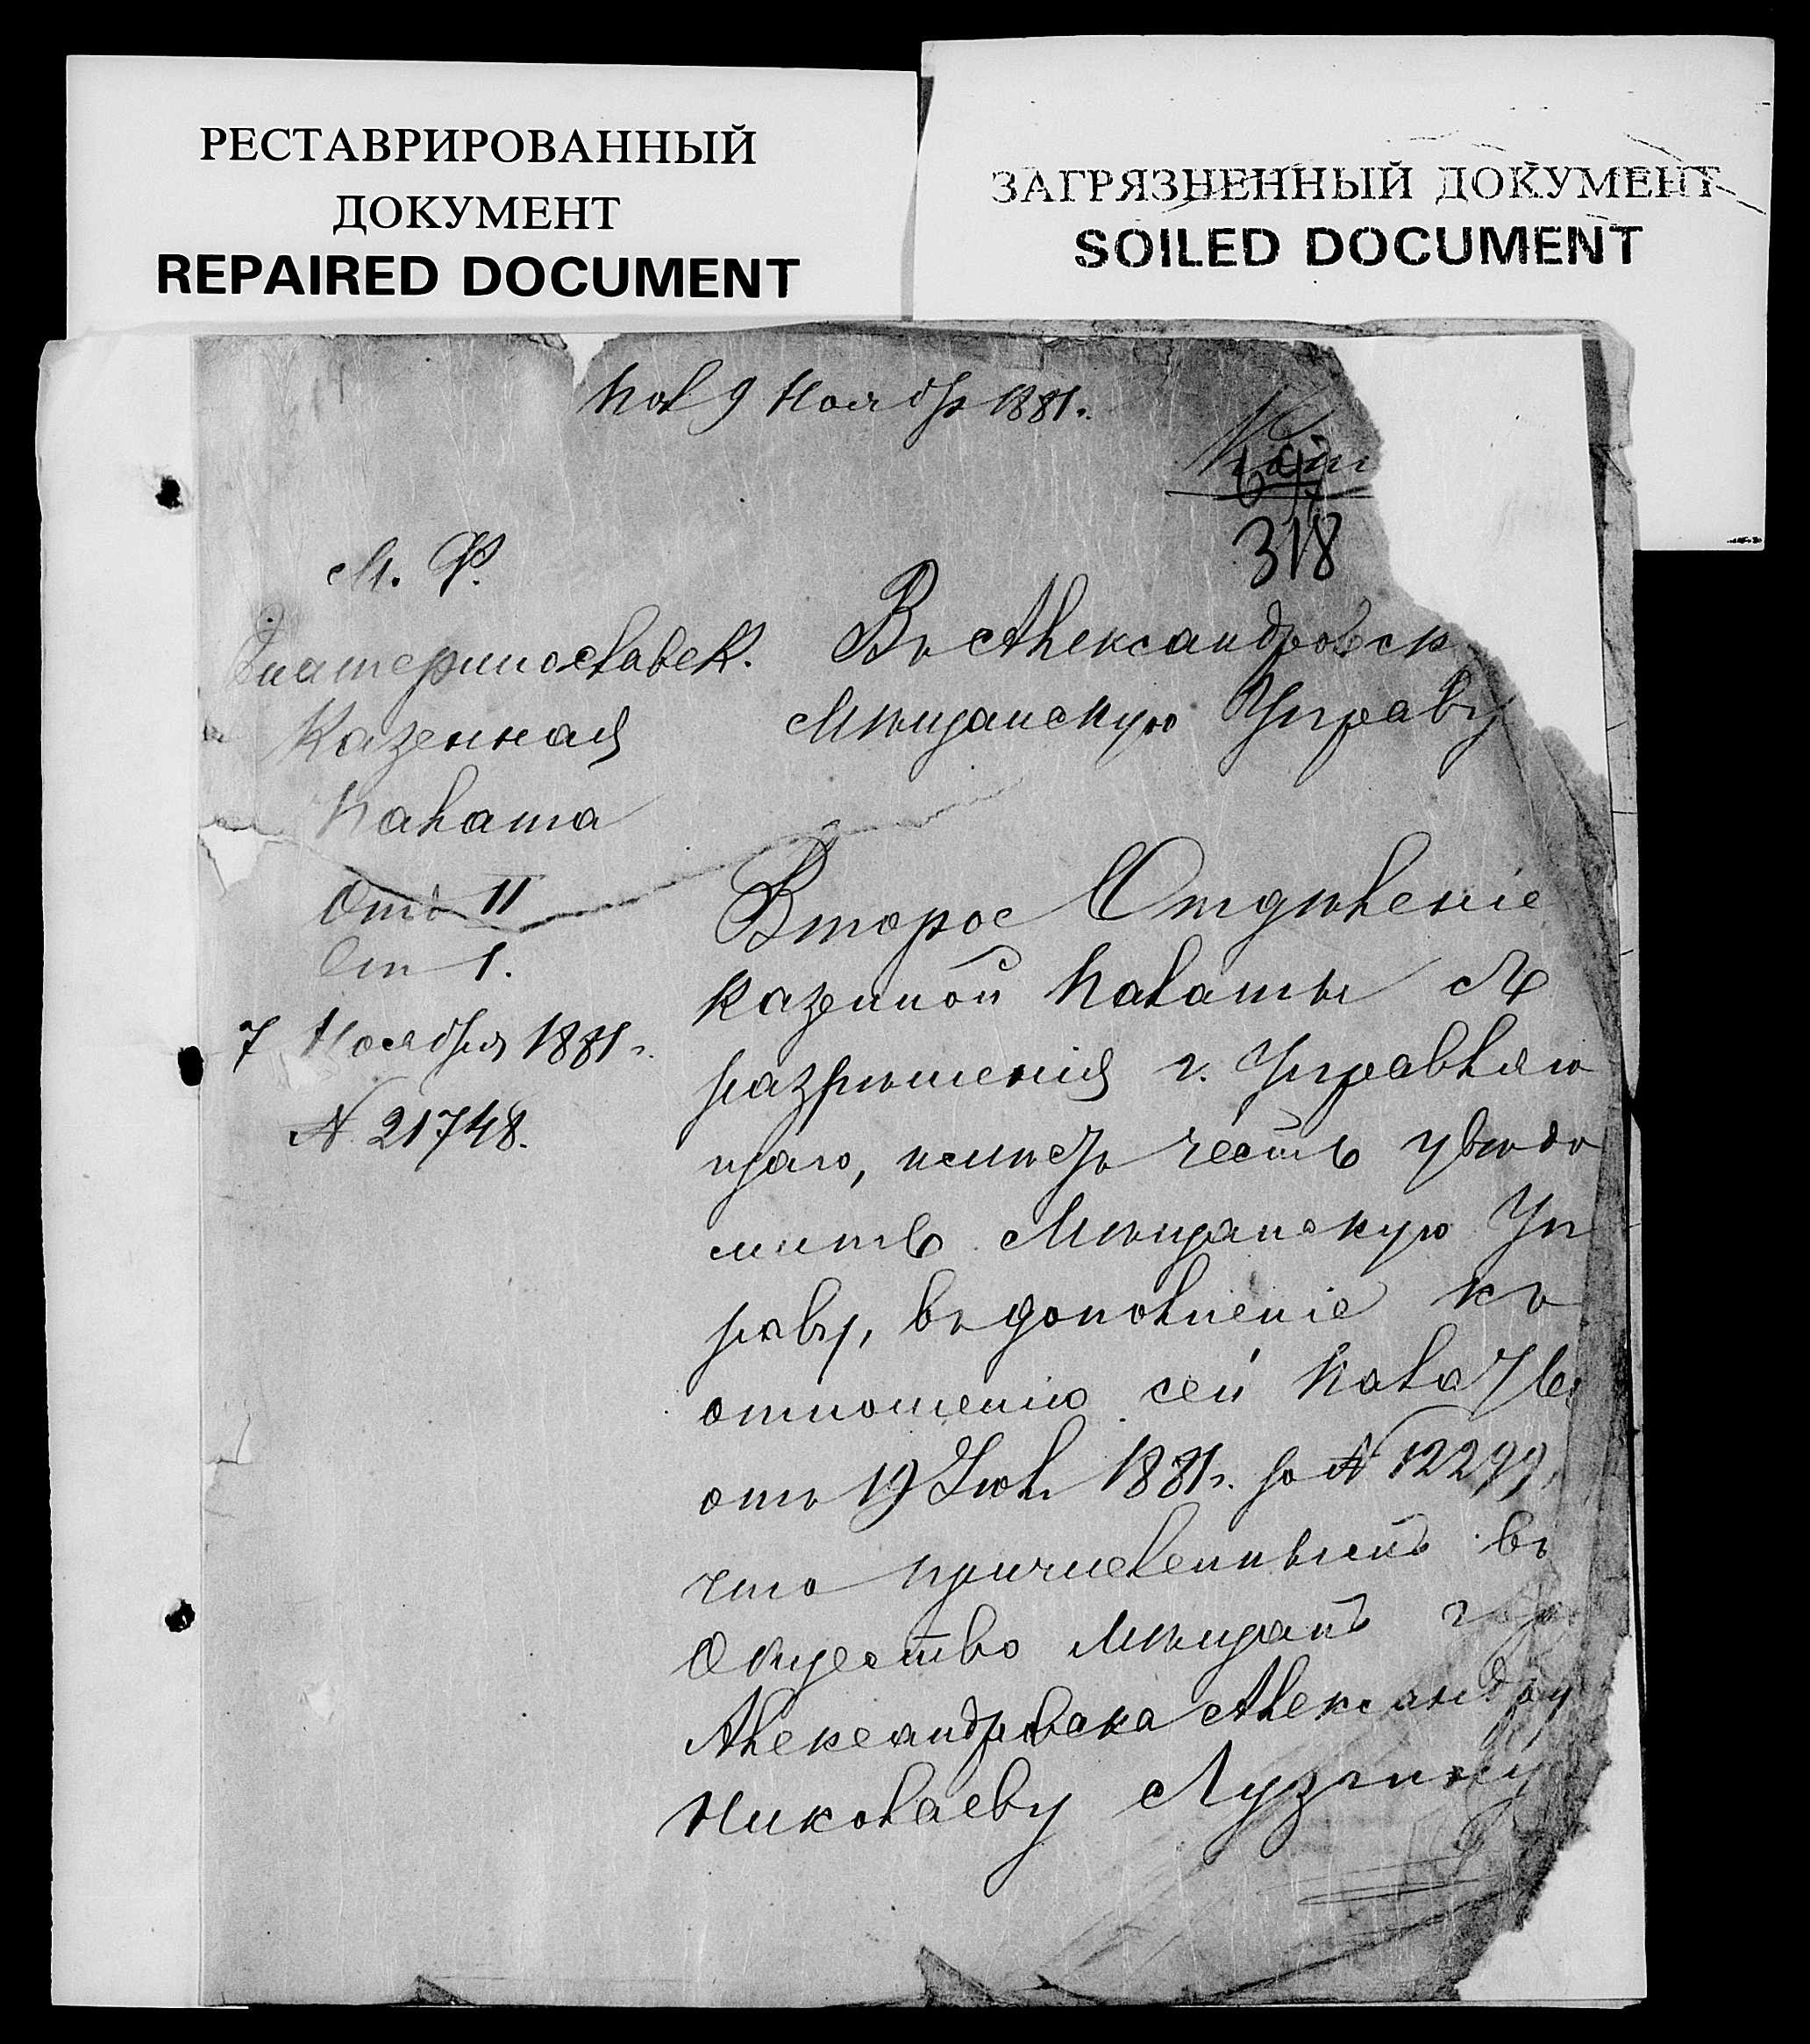 РЕСТАВРИРОВАННЫЙ
ДОКУМЕНТ
REPAIRED DOCUMENT
ЗАГРЯЗНЕННЫЙ ДОКУМЕНТ
SOILED DOCUMENT
Пол 9 Ноябр 1881.
318
М. Ф.
Екатеринославск.
Казенная
Палата
Отд II
Ст 1.
7 Ноября 1881 г.
№ 21748.
Въ Александровск
Мѣщанскую Управу
Второе Отдѣленіе
Казенной Палаты съ
разрѣшенія г. Управляю
щаго, имѣетъ честь увѣдо
мить Мѣщанскую Уп
раву, въ дополненіе къ
отношенію сей Палаты
отъ 19 Іюл 1881 г. за № 12299,
что причисленнымъ въ
Общество Мѣщанъ гор
Александровска Александру
Николаеву Лузгину